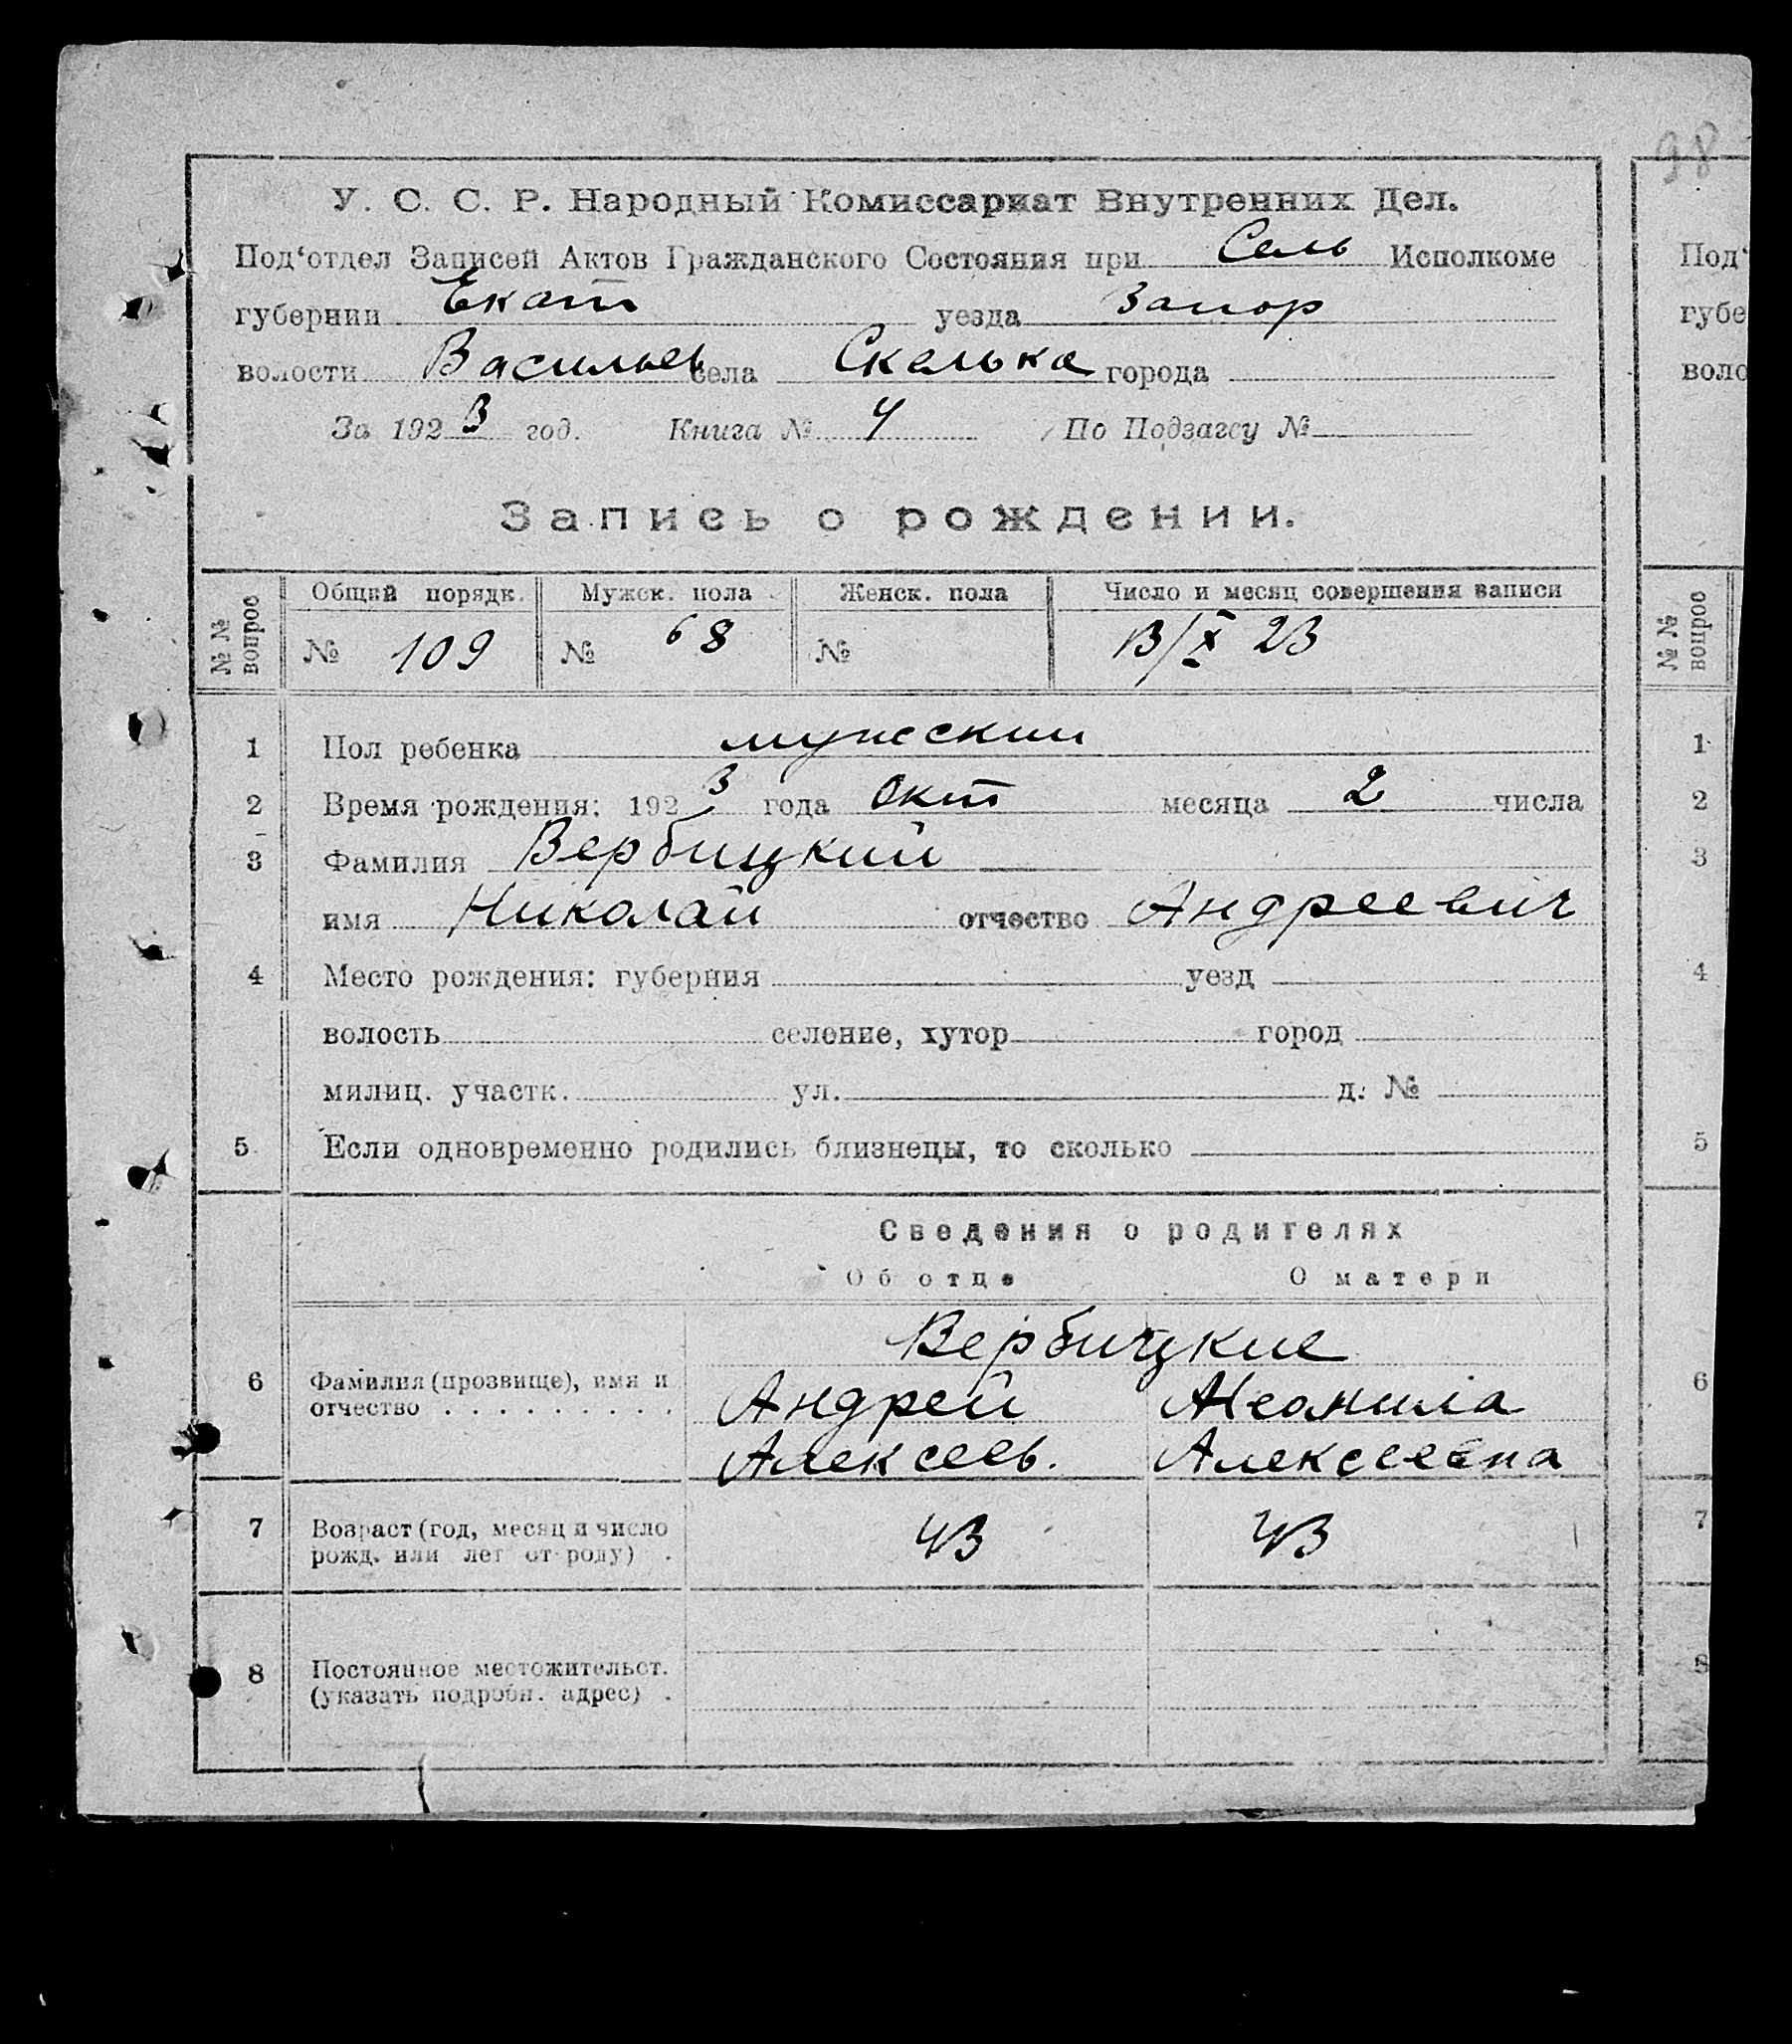 98
У. С. С. Р. Народный Комиссариат Внутренних Дел.
Под‘отдел Записей Актов Гражданского Состояния при Сель Исполкоме
губернии Екат уезда Запор
волости Васильев села Скелька города
За 1923 год. Книга № 4 По Подзагсу №
Запись о рождении.
№ № вопрос Общий порядк. Мужск. пола Женск. пола Число и месяц совершения записи
№ 109 № 68 № 13/X 23
1 Пол ребенка мужеский
2 Время рождения: 1923 года Окт месяца 2 числа
3 Фамилия Вербицкий
имя Николай отчество Андреевич
4 Место рождения: губерния уезд
волость селение, хутор город
милиц. участк. ул. д. №
5 Если одновременно родились близнецы, то сколько
Сведения о родителях
Об отце О матери
Вербицкие
6 Фамилия (прозвище), имя и Андрей
отчество Алексеев. Алексеевна
7 Возраст (год, месяц и число 43 43
рожд. или лет от роду)
8 Постоянное местожительст.
(указать подробн. адрес)
Под‘
губе
воло
№ № вопрос
1
2
3
4
5
6
7
8